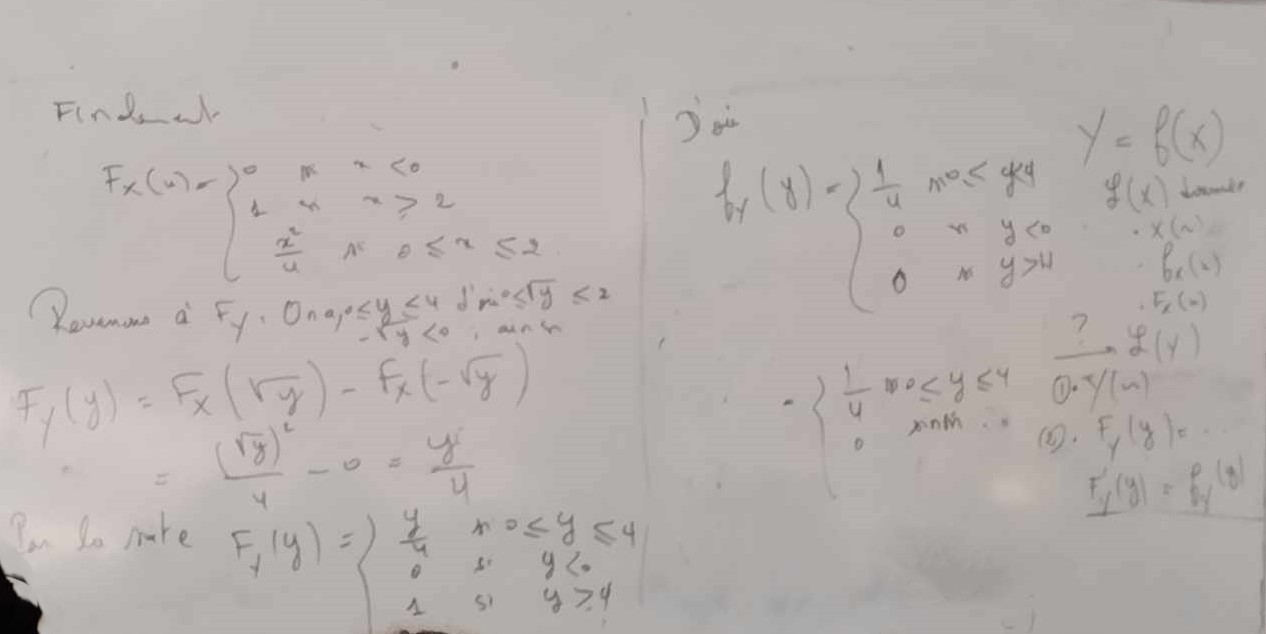 Finalement
F_X(x) = { 0 si x < 0
1 si x ≥ 2
x²/4 si 0 ≤ x ≤ 2
Revenons à F_Y. On a, 0 ≤ y ≤ 4 d'où 0 ≤ √y ≤ 2
-√y < 0, ainsi
F_Y(y) = F_X(√y) - F_X(-√y)
= (√y)²/4 - 0 = y/4
Par la suite F_Y(y) = { y/4 si 0 ≤ y ≤ 4
0 si y < 0
1 si y ≥ 4
D'où
f_Y(y) = { 1/4 si 0 ≤ y < 4
0 si y < 0
0 si y > 4
= { 1/4 si 0 ≤ y ≤ 4
0 sinon
Y = f(X)
ℒ(X) donnée
. X(Ω)
. f_X(x)
. F_X(x)
? → ℒ(Y)
①. Y(Ω)
②. F_Y(y) = ...
F'_Y(y) = f_Y(y)